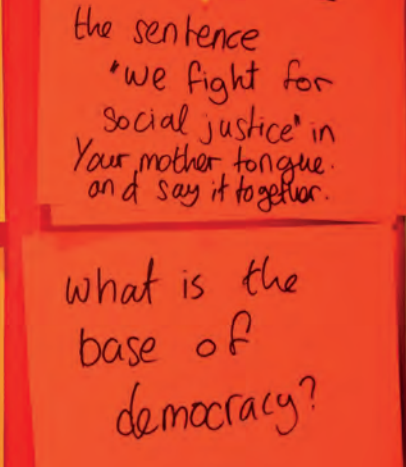 the sentence
"we fight for
social justice" in
Your mother tongue.
and say it together.
what is the
base of
democracy?